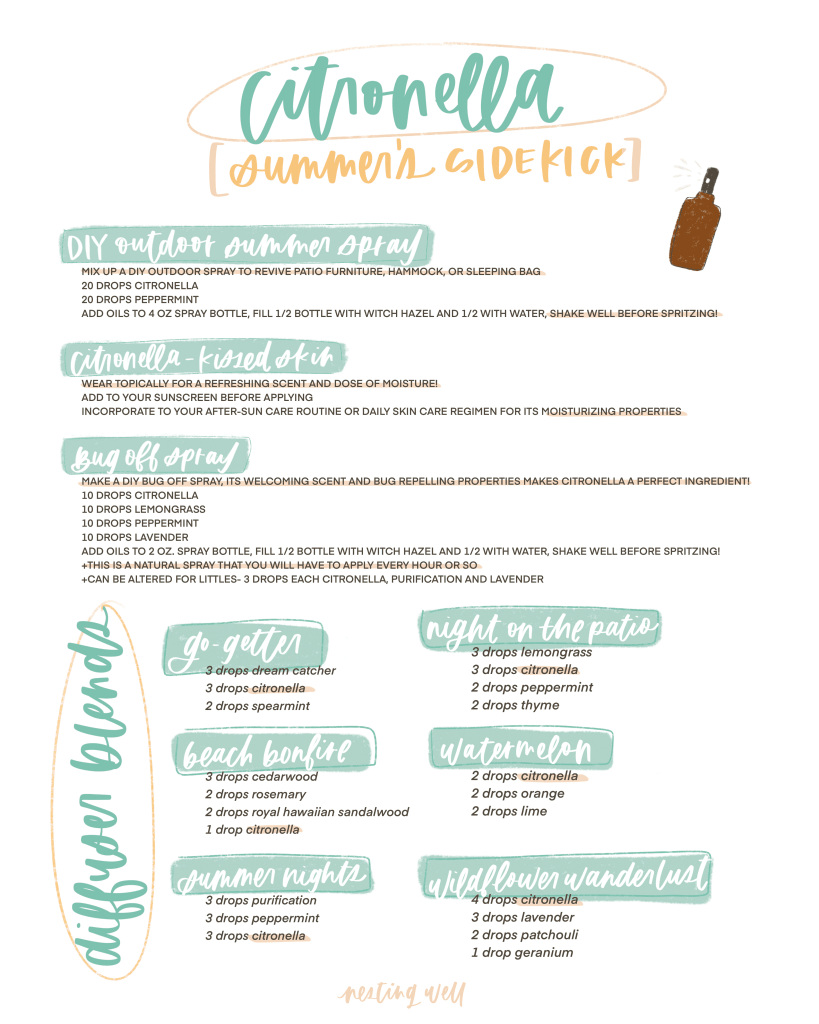 citronella
[summer's SIDEKICK]
DIY outdoor summer spray
MIX UP A DIY OUTDOOR SPRAY TO REVIVE PATIO FURNITURE, HAMMOCK, OR SLEEPING BAG
20 DROPS CITRONELLA
20 DROPS PEPPERMINT
ADD OILS TO 4 OZ SPRAY BOTTLE, FILL 1/2 BOTTLE WITH WITCH HAZEL AND 1/2 WITH WATER, SHAKE WELL BEFORE SPRITZING!
citronella - kissed skin
WEAR TOPICALLY FOR A REFRESHING SCENT AND DOSE OF MOISTURE!
ADD TO YOUR SUNSCREEN BEFORE APPLYING
INCORPORATE TO YOUR AFTER-SUN CARE ROUTINE OR DAILY SKIN CARE REGIMEN FOR ITS MOISTURIZING PROPERTIES
Bug off spray
MAKE A DIY BUG OFF SPRAY, ITS WELCOMING SCENT AND BUG REPELLING PROPERTIES MAKES CITRONELLA A PERFECT INGREDIENT!
10 DROPS CITRONELLA
10 DROPS LEMONGRASS
10 DROPS PEPPERMINT
10 DROPS LAVENDER
ADD OILS TO 2 OZ. SPRAY BOTTLE, FILL 1/2 BOTTLE WITH WITCH HAZEL AND 1/2 WITH WATER, SHAKE WELL BEFORE SPRITZING!
+THIS IS A NATURAL SPRAY THAT YOU WILL HAVE TO APPLY EVERY HOUR OR SO
+CAN BE ALTERED FOR LITTLES- 3 DROPS EACH CITRONELLA, PURIFICATION AND LAVENDER
diffuser blends
go-getter
3 drops dream catcher
3 drops citronella
2 drops spearmint
night on the patio
3 drops lemongrass
3 drops citronella
2 drops peppermint
2 drops thyme
beach bonfire
3 drops cedarwood
2 drops rosemary
2 drops royal hawaiian sandalwood
1 drop citronella
watermelon
2 drops citronella
2 drops orange
2 drops lime
summer nights
3 drops purification
3 drops peppermint
3 drops citronella
wildflower wanderlust
4 drops citronella
3 drops lavender
2 drops patchouli
1 drop geranium
nesting well